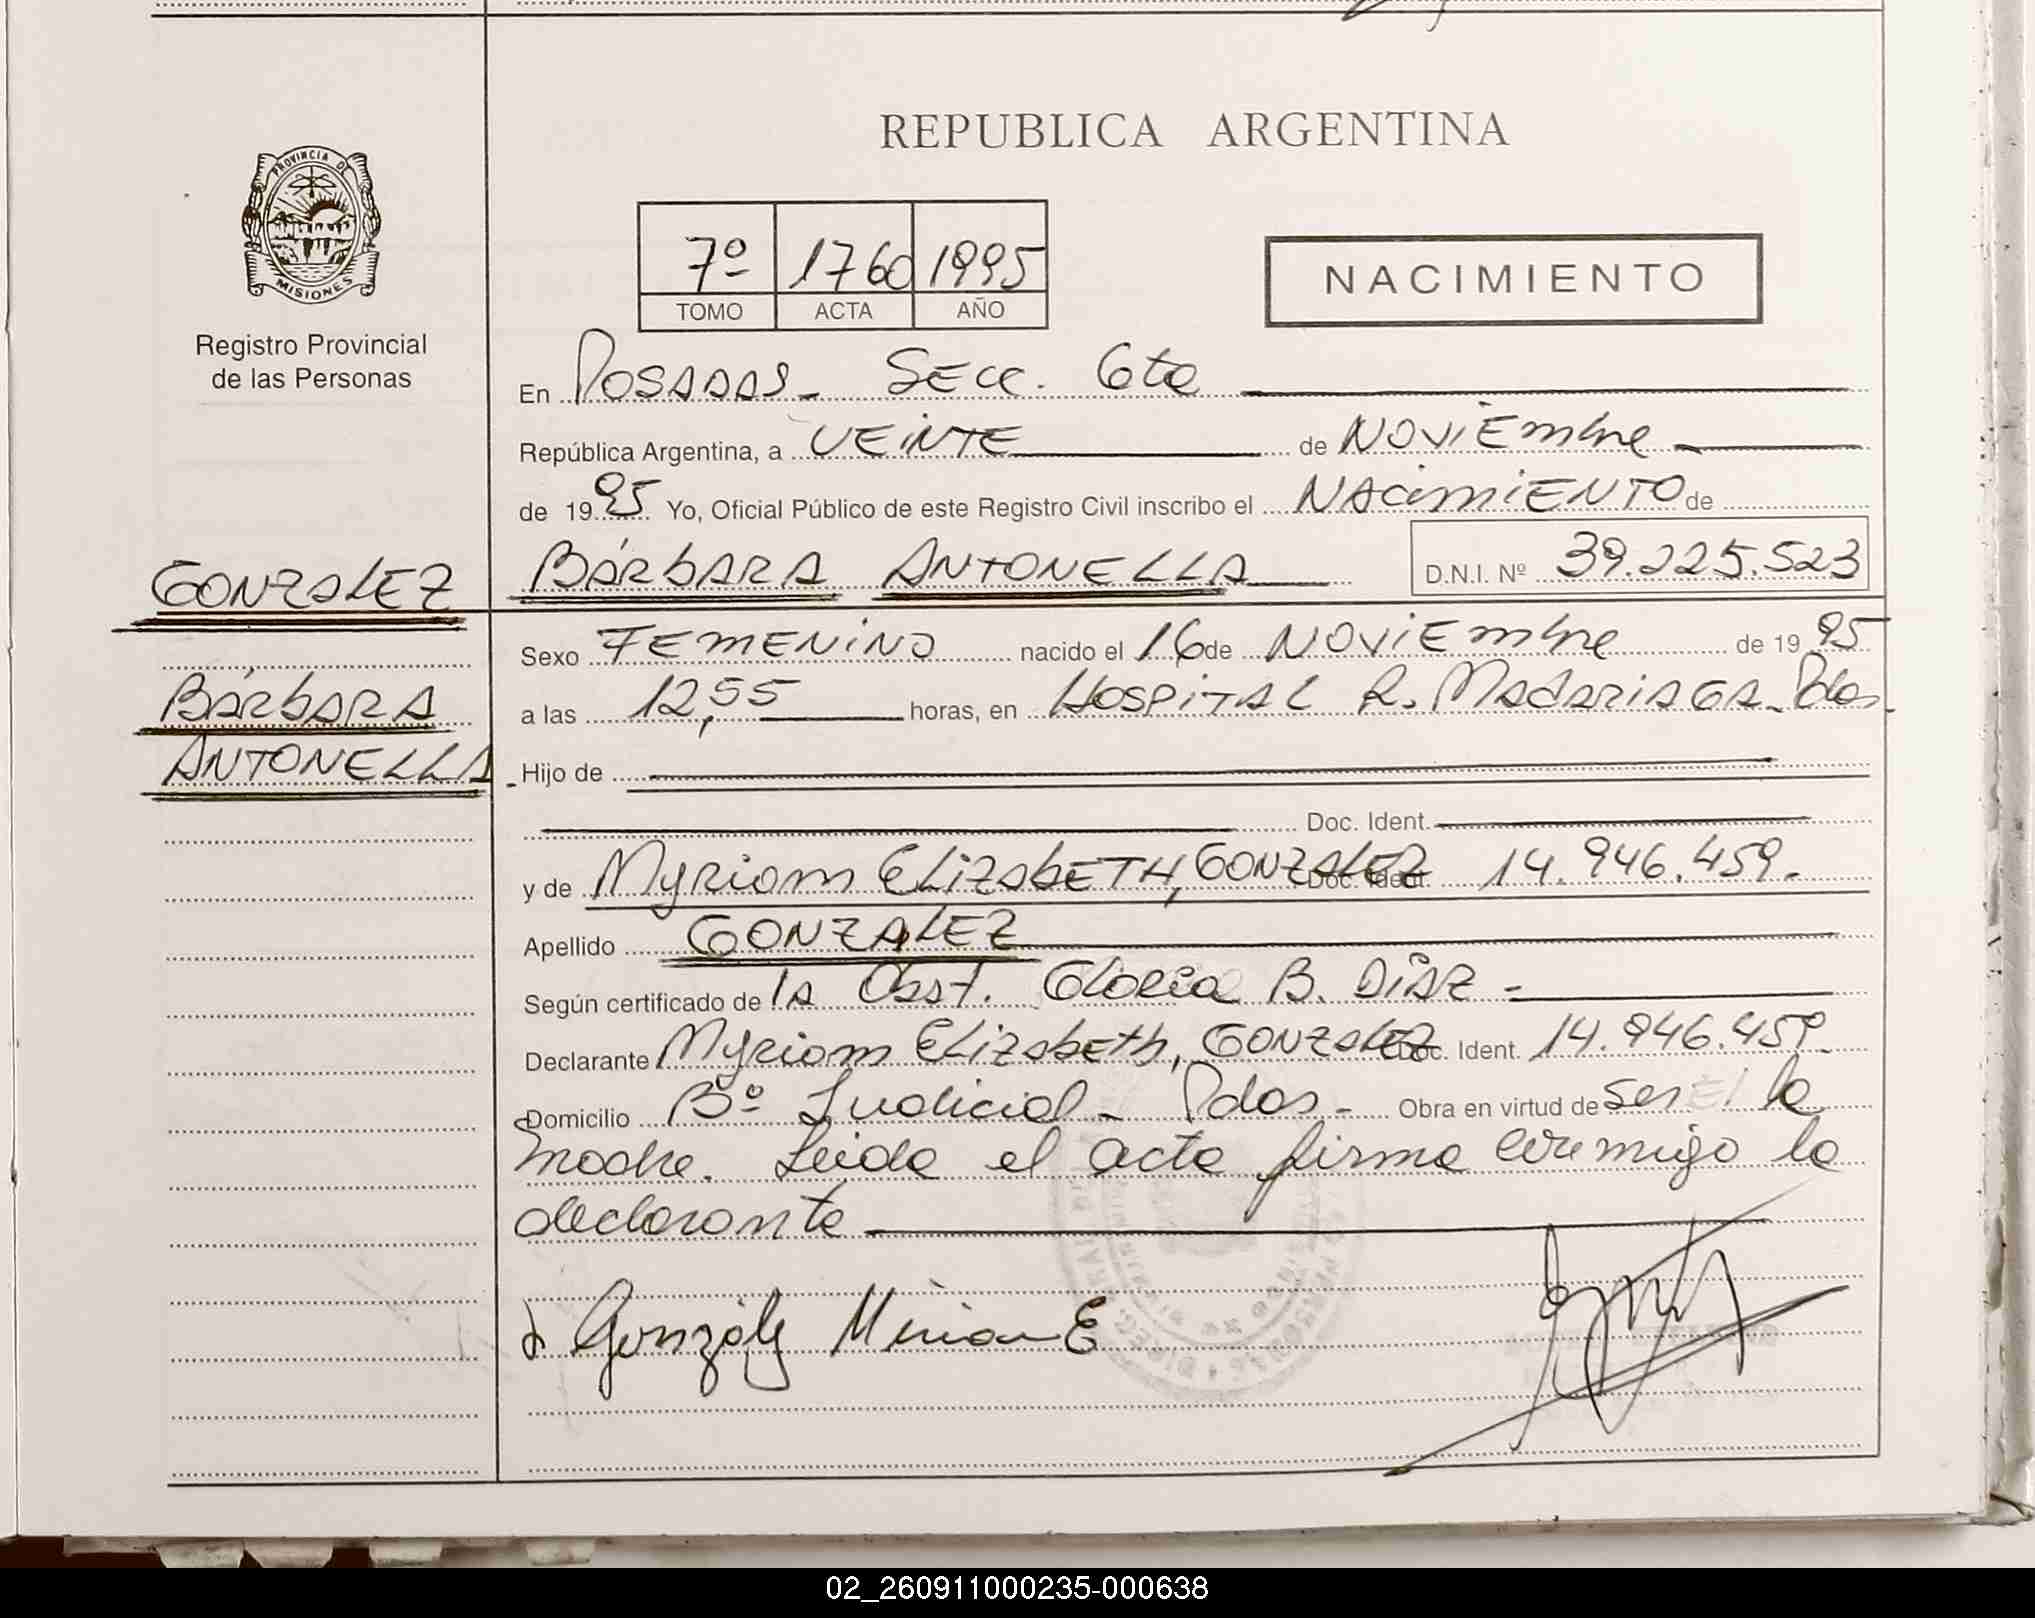 REPUBLICA ARGENTINA
PROVINCIA DE
MISIONES
Registro Provincial
de las Personas
7º 1760 1995
TOMO ACTA AÑO
NACIMIENTO
En POSADAS - SECC. 6ta
República Argentina, a VEINTE de NOVIEmbre
de 1995 Yo, Oficial Público de este Registro Civil inscribo el NACimiENTO de
GONZALEZ
BÁRBARA ANTONELLA D.N.I. Nº 39.225.523
Sexo FEMENINO nacido el 16 de NOVIEmbre de 1995
BÁRBARA
ANTONELLA
a las 12,55 horas, en HOSPITAL R. MADARIAGA - Pdas.
Hijo de
Doc. Ident.
y de Myriam ELIZABETH, GONZALEZ Doc. Ident. 14.946.459.
Apellido GONZALEZ
Según certificado de la Obst. Gloria B. DÍAZ -
Declarante Myriam Elizabeth, GONZALEZ Doc. Ident. 14.946.459.
Domicilio Bº Judicial - Pdas. - Obra en virtud de ser la
madre. Leida el acta firma conmigo la
declarante
González Miriam E
02_260911000235-000638